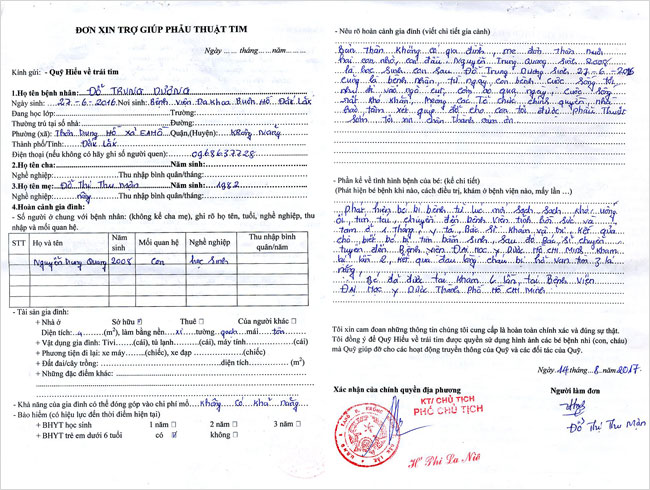 ĐƠN XIN TRỢ GIÚP PHẪU THUẬT TIM
Ngày ...... tháng ...... năm..........
Kính gửi: - Quỹ Hiểu về trái tim
1.Họ tên bệnh nhân: ĐỖ TRUNG DƯƠNG
Ngày sinh: 27-6-2016 Nơi sinh: Bệnh Viện Đa Khoa Buôn Hồ Đắk Lắk
Đang học lớp: Trường:
Thường trú tại số nhà: Đường:
Phường (xã): Thôn Dung Hồ Xã EAHồ Quận,(Huyện): Krông Năng
Thành phố/Tỉnh: Đắk Lắk
Điện thoại (nếu không có hãy ghi số người quen): 0968637728
2.Họ tên cha: Năm sinh:
Nghề nghiệp: Thu nhập bình quân/tháng:
3.Họ tên mẹ: Đỗ Thị Thu Mận Năm sinh: 1982
Nghề nghiệp: rẫy Thu nhập bình quân/tháng:
4.Hoàn cảnh gia đình:
- Số người ở chung với bệnh nhân: (không kể cha mẹ), ghi rõ họ tên, tuổi, nghề nghiệp, thu
nhập và mối quan hệ:
STT Họ và tên Năm sinh Mối quan hệ Nghề nghiệp Thu nhập bình quân/năm
Nguyễn Trung Quang 2008 con học sinh
- Tài sản gia đình:
+ Nhà ở Sở hữu Thuê Của người khác
Diện tích: (m²), làm bằng nền xi tường gạch mái tôn
+ Vật dụng gia đình: Tivi (cái), tủ lạnh (cái), máy tính (cái)
+ Phương tiện đi lại: xe máy (chiếc), xe đạp (chiếc)
+ Đất đai/cây trồng: diện tích (m²)
+ Những đặc điểm khác:
- Khả năng của gia đình có thể đóng góp vào chi phí mổ Không có khả năng
- Bảo hiểm (có hiệu lực đến thời điểm hiện tại)
+ BHYT học sinh 1 năm 2 năm 3 năm
+ BHYT trẻ em dưới 6 tuổi có không
- Nêu rõ hoàn cảnh gia đình (viết chi tiết gia cảnh)
Bản Thân Không có gia đình, mẹ đơn thân nuôi
hai con nhỏ, con đầu Nguyễn Trung Quang sinh 2008
là học sinh con sau Đỗ Trung Dương sinh 27-6-2016
cũng là bệnh nhân từ ngày con bệnh cuộc sống tôi
như đi vào ngõ cụt, cơm bỏ qua ngày cuộc sống
rất khó khăn, mong các Tổ chức chính quyền, nhà
hảo tâm xét giúp đỡ cho con tôi được phẫu Thuật
sớm tôi xin chân Thành cảm ơn
- Phần kể về tình hình bệnh của bé: (kể chi tiết)
(Phát hiện bé bệnh khi nào, cách điều trị, khám ở bệnh viện nào, mấy lần ...)
phát hiện bé bị bệnh từ lúc mới
ói, tím tái, chuyển đến bệnh Viện
1 tháng, Bác sĩ Khám và Kết quả
cho biết bé bị tim bẩm sinh sau đó Bác sĩ chuyển
tuyến đến Bệnh Viện ĐẠI Học Y Dược Hồ CHÍ Minh Khám
lại lần 2, Kết quả đau lòng cháu bị hở van tim 3 lá
nặng
Bé đã được tái khám 6 lần tại Bệnh Viện
ĐẠI Học Y Dược Thành Phố Hồ CHÍ Minh
Tôi xin cam đoan những thông tin chúng tôi cung cấp là hoàn toàn chính xác và đúng sự thật.
Tôi đồng ý để Quỹ Hiểu về trái tim được quyền sử dụng hình ảnh các bé bệnh nhi (con, cháu)
mà Quỹ giúp đỡ cho các hoạt động truyền thông của Quỹ và các đối tác của Quỹ.
Ngày 14 tháng 8 năm 2017
Xác nhận của chính quyền địa phương Người làm đơn
KT/ CHỦ TỊCH
PHÓ CHỦ TỊCH
Đỗ Thị Thu Mận
H' Phi La Niê